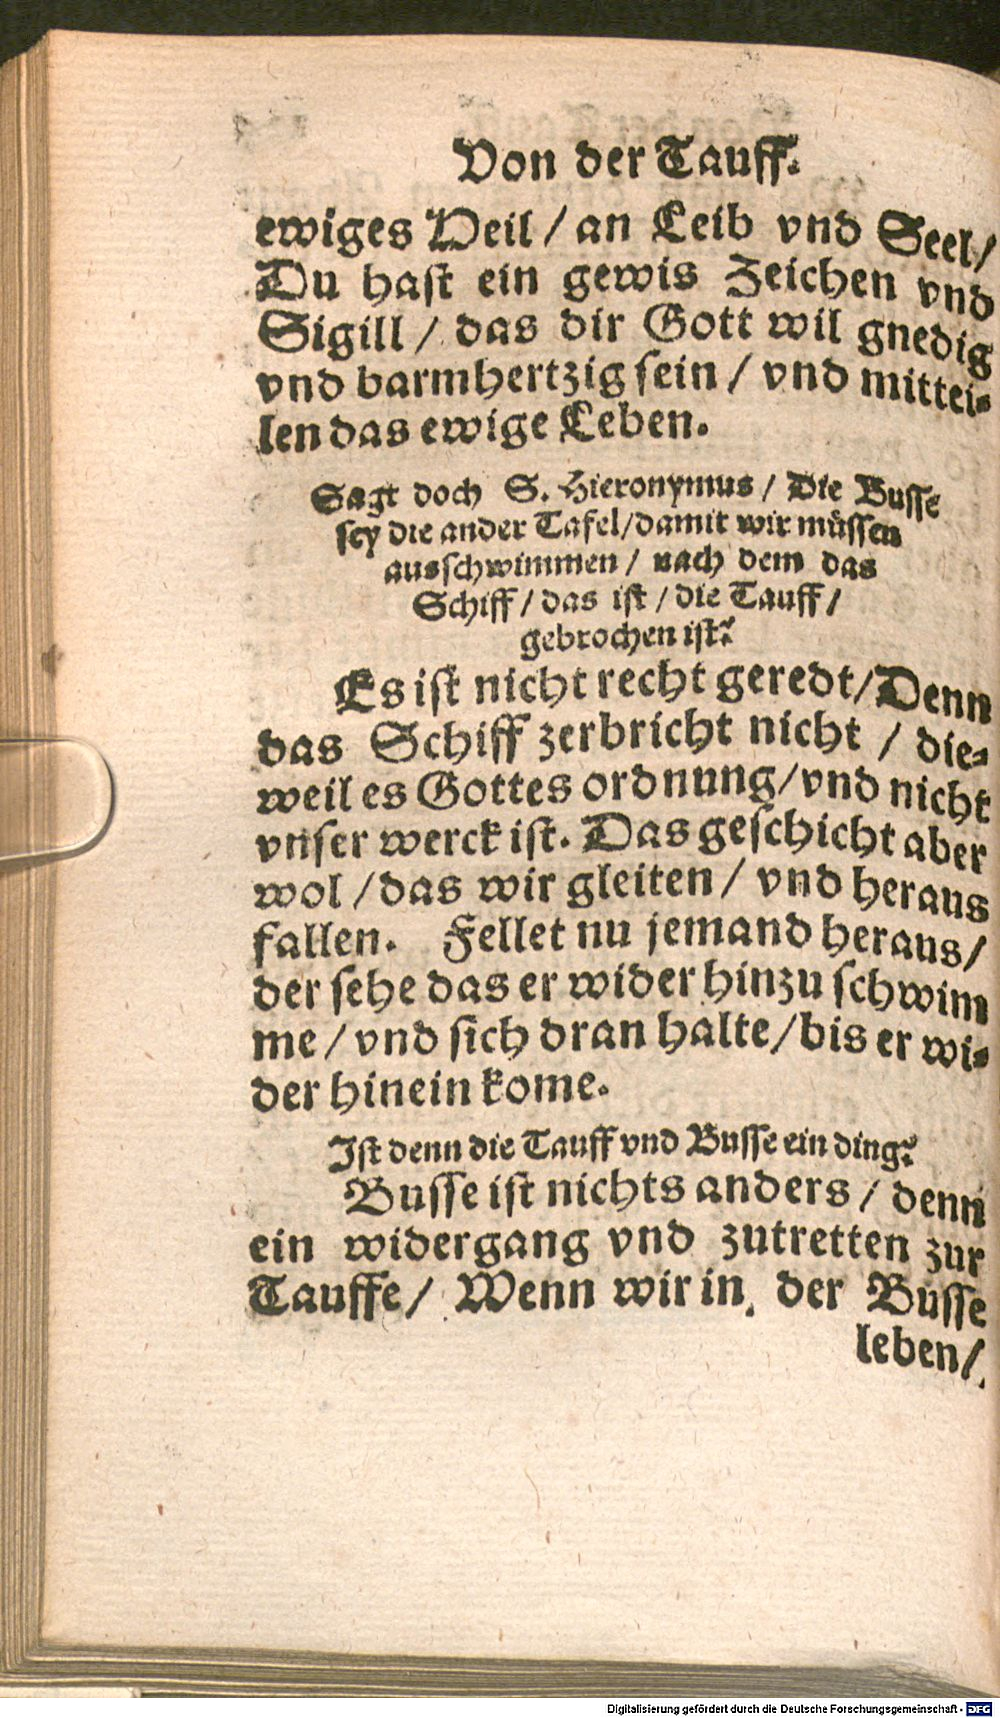 Von der Tauff.
ewiges Heil / an Leib vnd Seel /
Du hast ein gewis Zeichen vnd
Sigill / das dir Gott wil gnedig
vnd barmhertzig sein / vnd mittei-
len das ewige Leben.
Sagt doch S. Hieronymus / Die Busse
sey die ander Tafel / damit wir müssen
ausschwimmen / nach dem das
Schiff / das ist / die Tauff /
gebrochen ist?
Es ist nicht recht geredt / Denn
das Schiff zerbricht nicht / die-
weil es Gottes ordnung / vnd nicht
vnser werck ist. Das geschicht aber
wol / das wir gleiten / vnd heraus
fallen. Fellet nu jemand heraus /
der sehe das er wider hinzu schwim
me / vnd sich dran halte / bis er wi-
der hinein kome.
Ist denn die Tauff vnd Busse ein ding?
Busse ist nichts anders / denn
ein widergang vnd zutretten zur
Tauffe / Wenn wir in der Busse
leben /
Digitalisierung gefördert durch die Deutsche Forschungsgemeinschaft - DFG